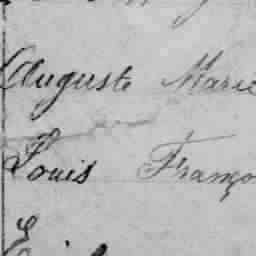 Auguste Marie
Louis Franço